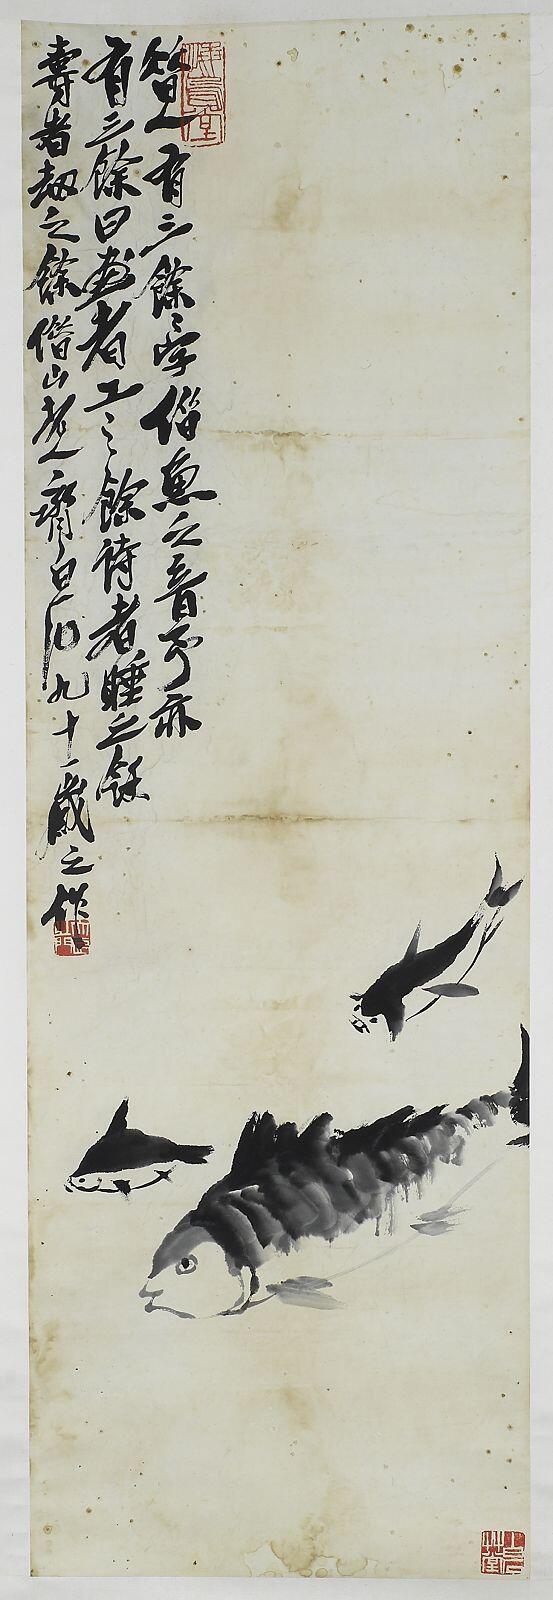 人有三餘〻字借魚之音予亦
有三餘曰畫者工〻餘詩者睡之餘
壽者劫之餘借山老人齊白石九十一歲之作
悔烏堂